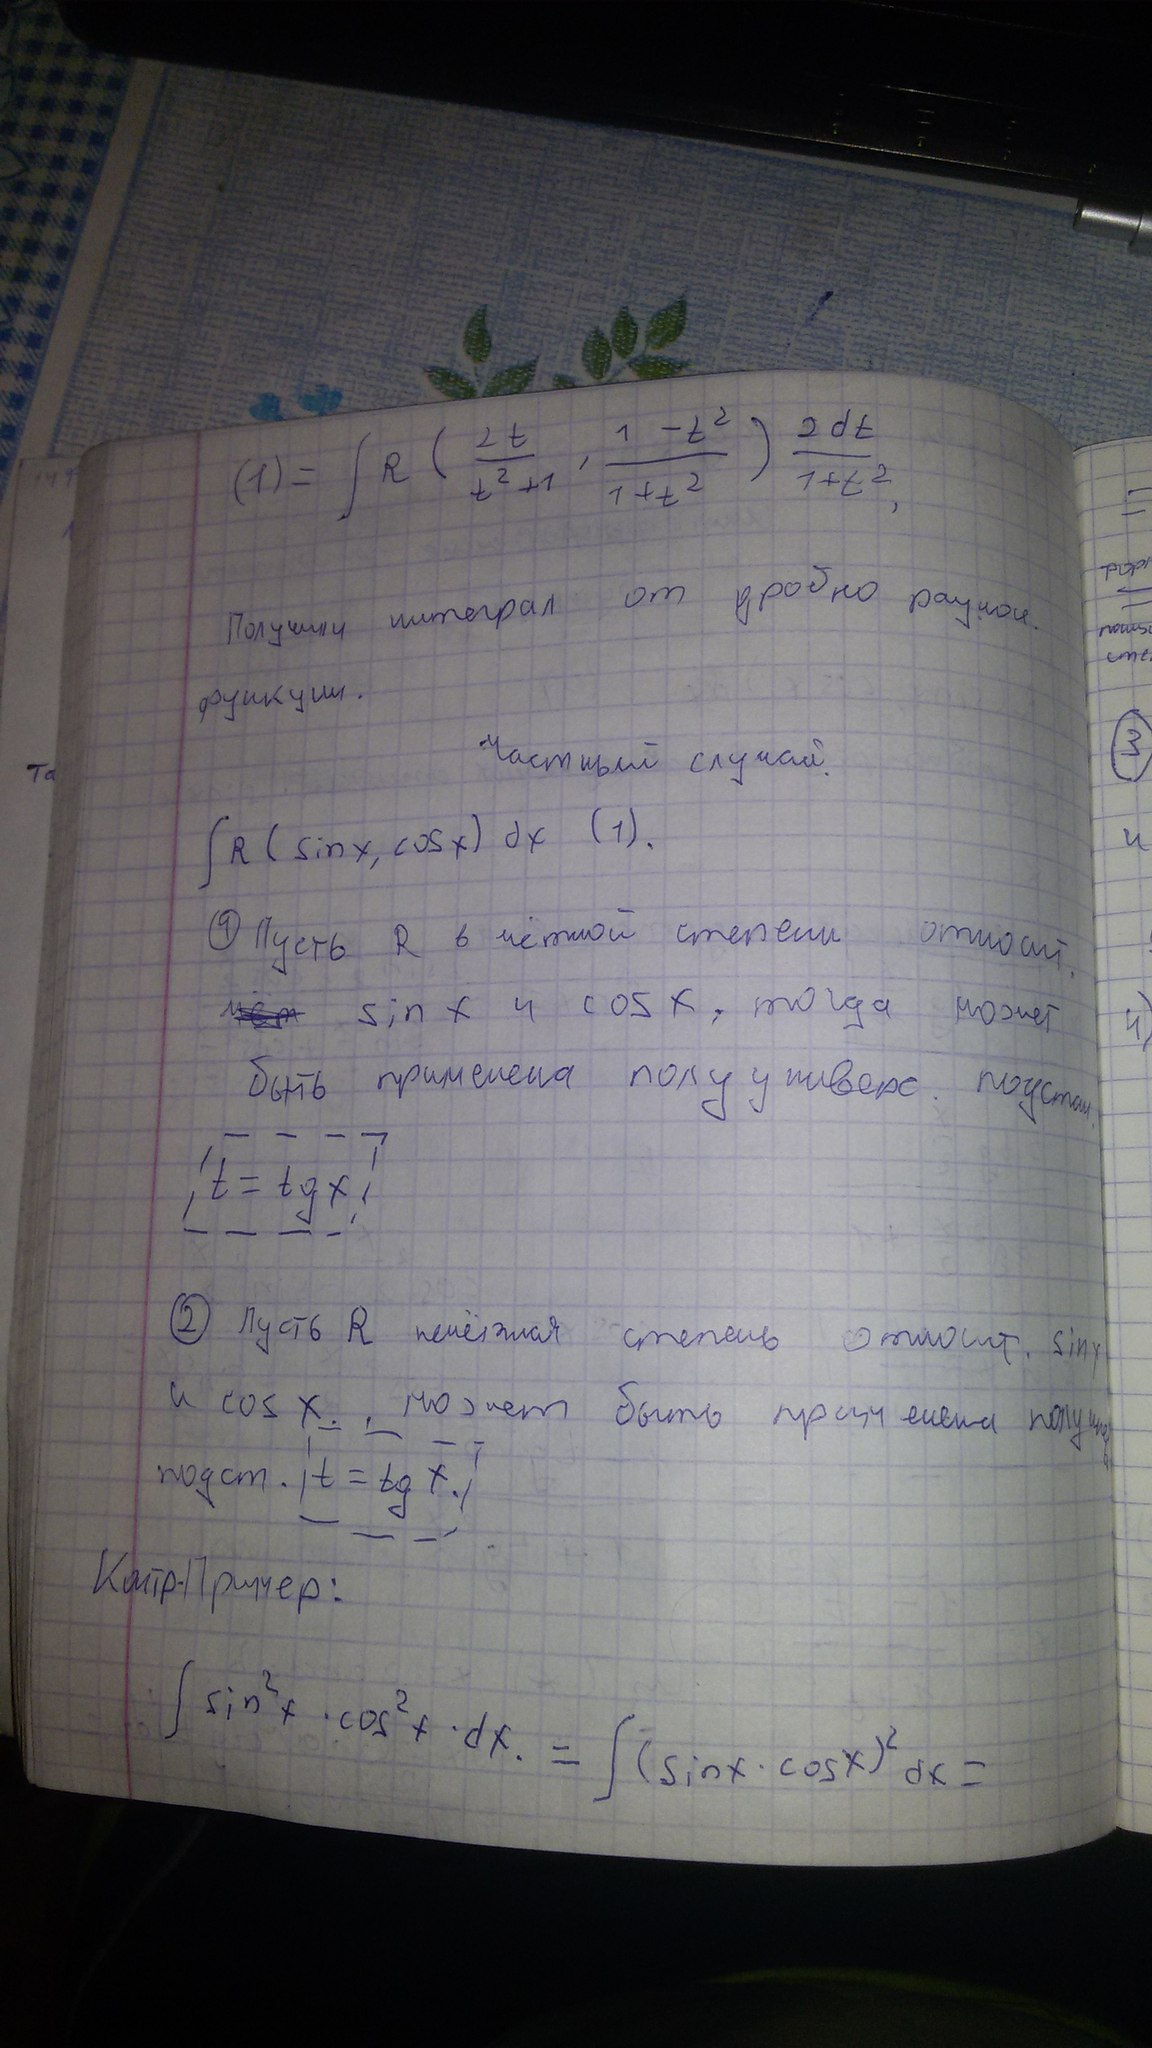 (1) = ∫ R ( 2t / t²+1 , 1-t² / 1+t² ) 2dt / 1+t² ,
Получили интеграл от дробно рацион.
функции.
Частный случай.
∫ R ( sinx, cosx) dx (1).
① Пусть R в чётной степени относит.
sin x и cos x, тогда может
быть применена полууниверс. подстан.
t = tg x
② Пусть R нечётная степень относит. sinx
и cos x. , может быть применена
подст. t = tg x.
Контр-Пример:
∫ sin²x · cos²x · dx. = ∫ (sinx · cosx)² dx =
③
4)
Та